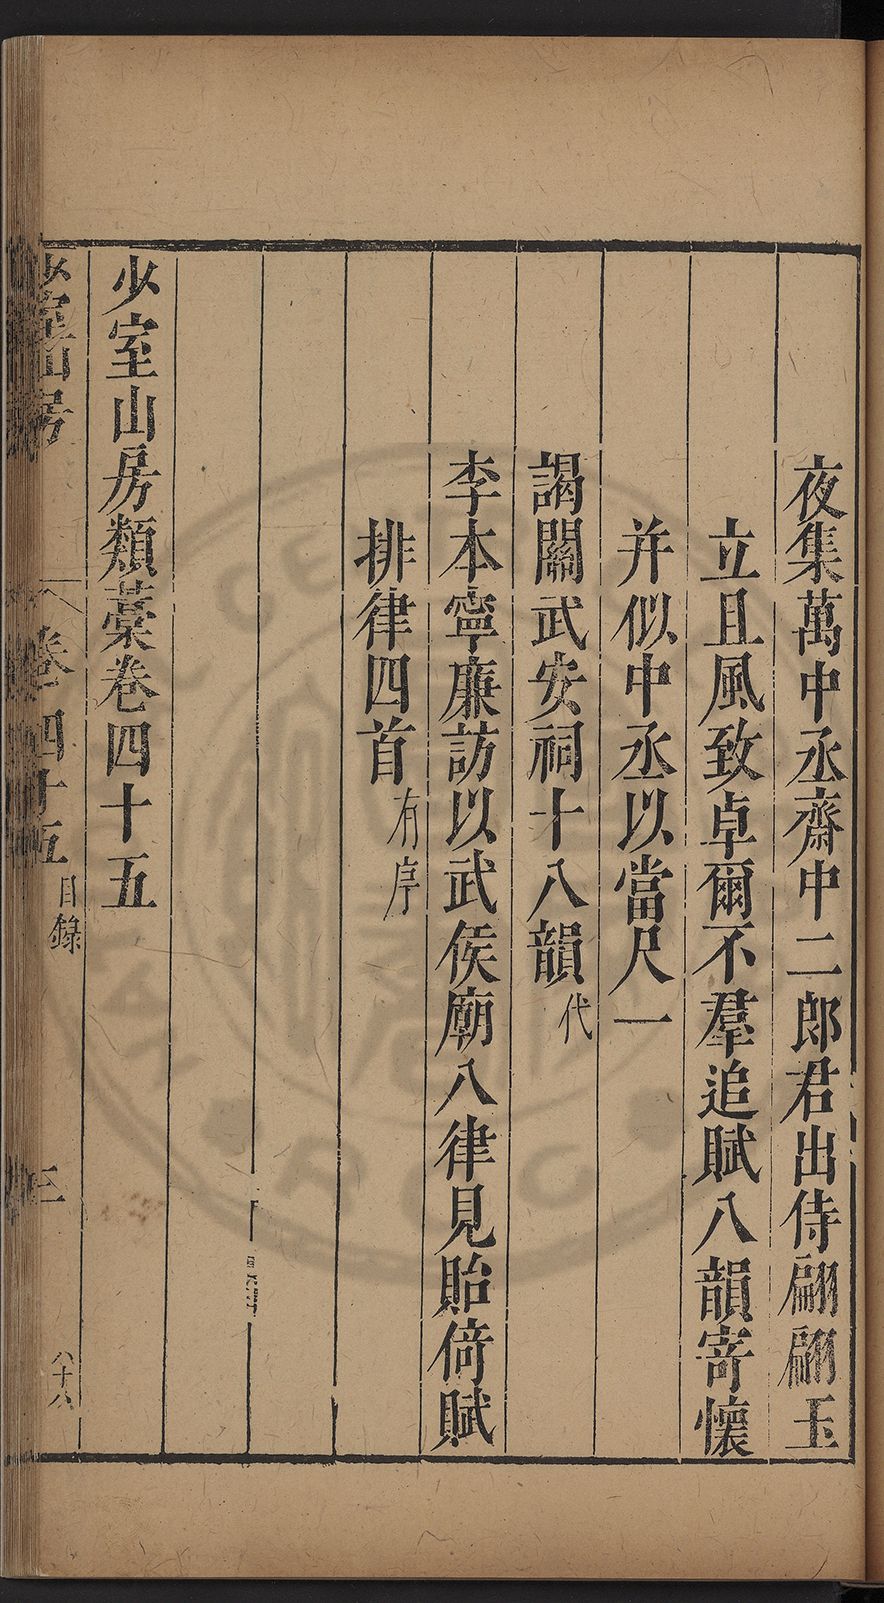 夜集萬中丞齋中二郎君出侍翩翩玉
立且風致卓爾不羣追賦八韻寄懷
并似中丞以當尺一
謁關武安祠十八韻代
李本寧廉訪以武侯廟八律見貽倚賦
排律四首有序
少室山房類藁卷四十五
少室山房
卷四十五目錄
三
八十八